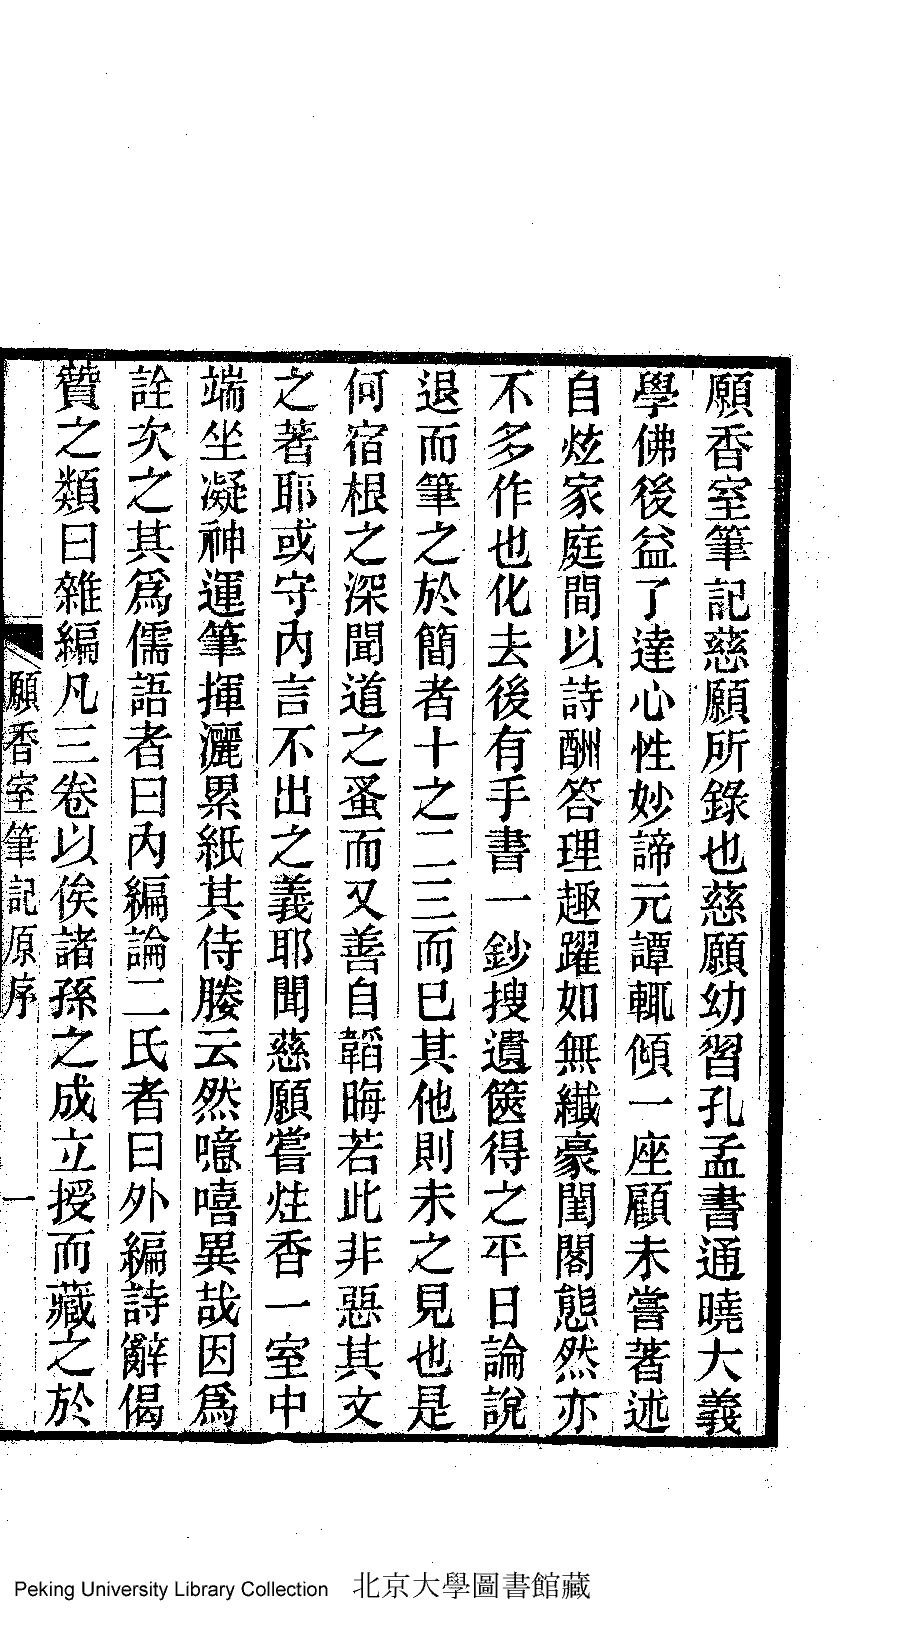 願香室筆記慈願所錄也慈願幼習孔孟書通曉大義
學佛後益了達心性妙諦元譚輒傾一座顧未嘗著述
自炫家庭間以詩酬答理趣躍如無纖豪閨閣態然亦
不多作也化去後有手書一鈔搜遺篋得之平日論說
退而筆之於簡者十之二三而已其他則未之見也是
何宿根之深聞道之蚤而又善自韜晦若此非惡其文
之著耶或守內言不出之義耶聞慈願嘗炷香一室中
端坐凝神運筆揮灑累紙其侍媵云然噫嘻異哉因爲
詮次之其爲儒語者曰內編論二氏者曰外編詩辭偈
贊之類曰雜編凡三卷以俟諸孫之成立授而藏之於
願香室筆記原序 一
Peking University Library Collection 北京大學圖書館藏